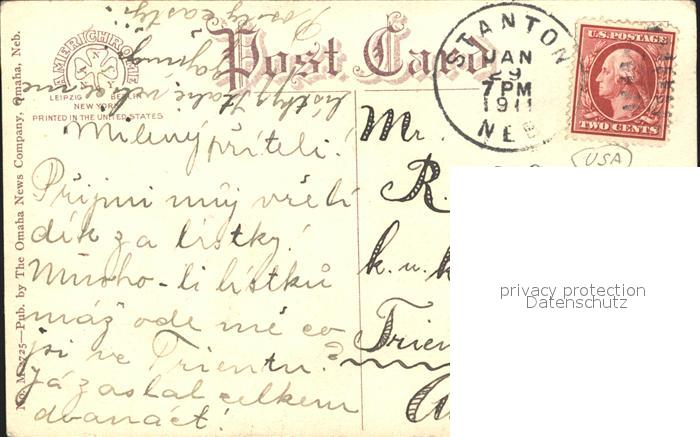 Post Card
AMERICHROME
LEIPZIG BERLIN
NEW YORK
PRINTED IN THE UNITED STATES
No. M 1725—Pub. by The Omaha News Company, Omaha, Neb.
STANTON
JAN
29
7 PM
1911
NEB
U.S. POSTAGE
TWO CENTS
USA
Milený příteli!
Přijmi můj vřelí
dík za lístky!
Mnoho-li lístků
máž ode mě co
jsi ve Trientu?
Já zaslal celkem
dvanáct!
Mr.
R.
k. u. k
Trien
privacy protection
Datenschutz